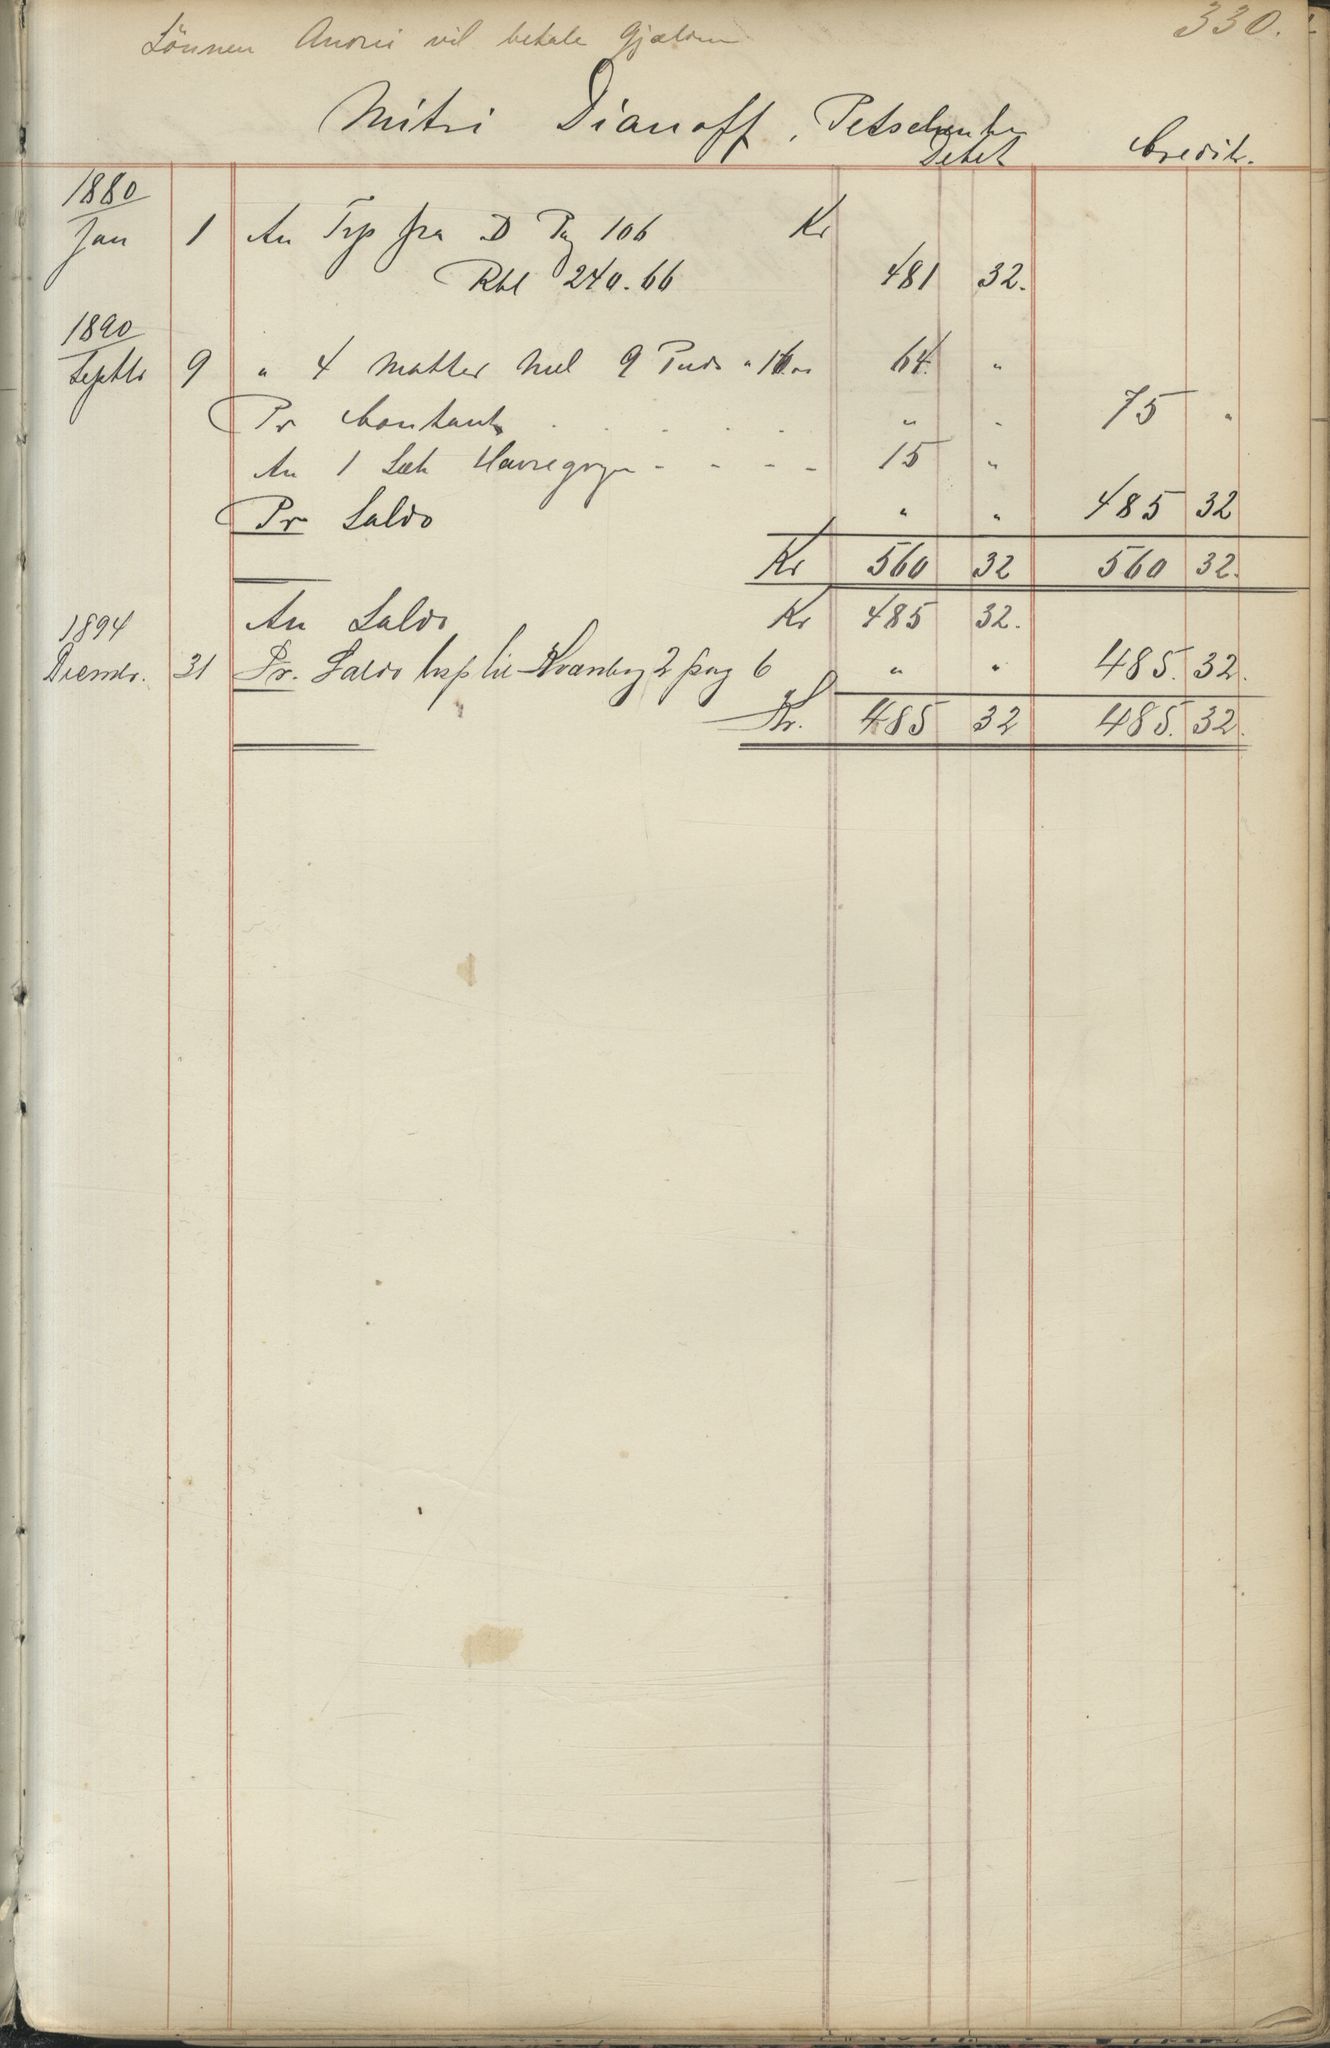 330.
Sönnen Andrei vil betale Gjælden
Mitri Dianoff, Petschenka
Debet Credit.
1880
Jan 1 An Trp fra D Pag 106 Kr
Rbl 240.66 481 32.
1890
Septbr 9 " 4 Matter Mel 9 Puds " 16 64 "
Pr Contant . . . . . " " 75 "
An 1 Sæk Havregryn - - - - 15 "
Pr Saldo " " 485 32
Kr 560 32 560 32.
An Saldo Kr 485 32.
1894
Decmbr. 31 Pr. Saldo trsp til Kvænbog 2 pag 6 " " 485. 32.
Kr. 485 32 485. 32.